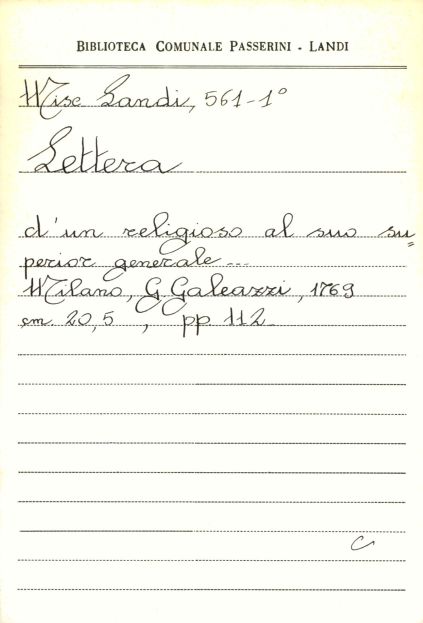 BIBLIOTECA COMUNALE PASSERINI - LANDI
Misc Landi, 561-1°
Lettera
d'un religioso al suo su=
perior generale...
Milano, G. Galeazzi, 1769
cm. 20,5 , pp. 112
C